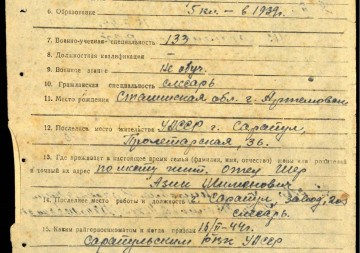 6. Образование 5 кл. – в 1939 г.
7. Военно-учетная специальность 133
8. Должностная квалификация –
9. Военное звание не обуч.
10. Гражданская специальность слесарь
11. Место рождения Сталинская обл. г. Артемовск
12. Последнее место жительства УАССР г. Сарапул,
Пролетарская 36.
13. Где проживает в настоящее время семья (фамилия, имя, отчество) жены или родителей
точный их адрес по месту жит. отец Шер
14. Последнее место работы и должность г. Сарапул, завод, 203
слесарь.
15. Каким райвоенкоматом и когда призван 15/II-44 г.
Сарапульским РВК УАССР